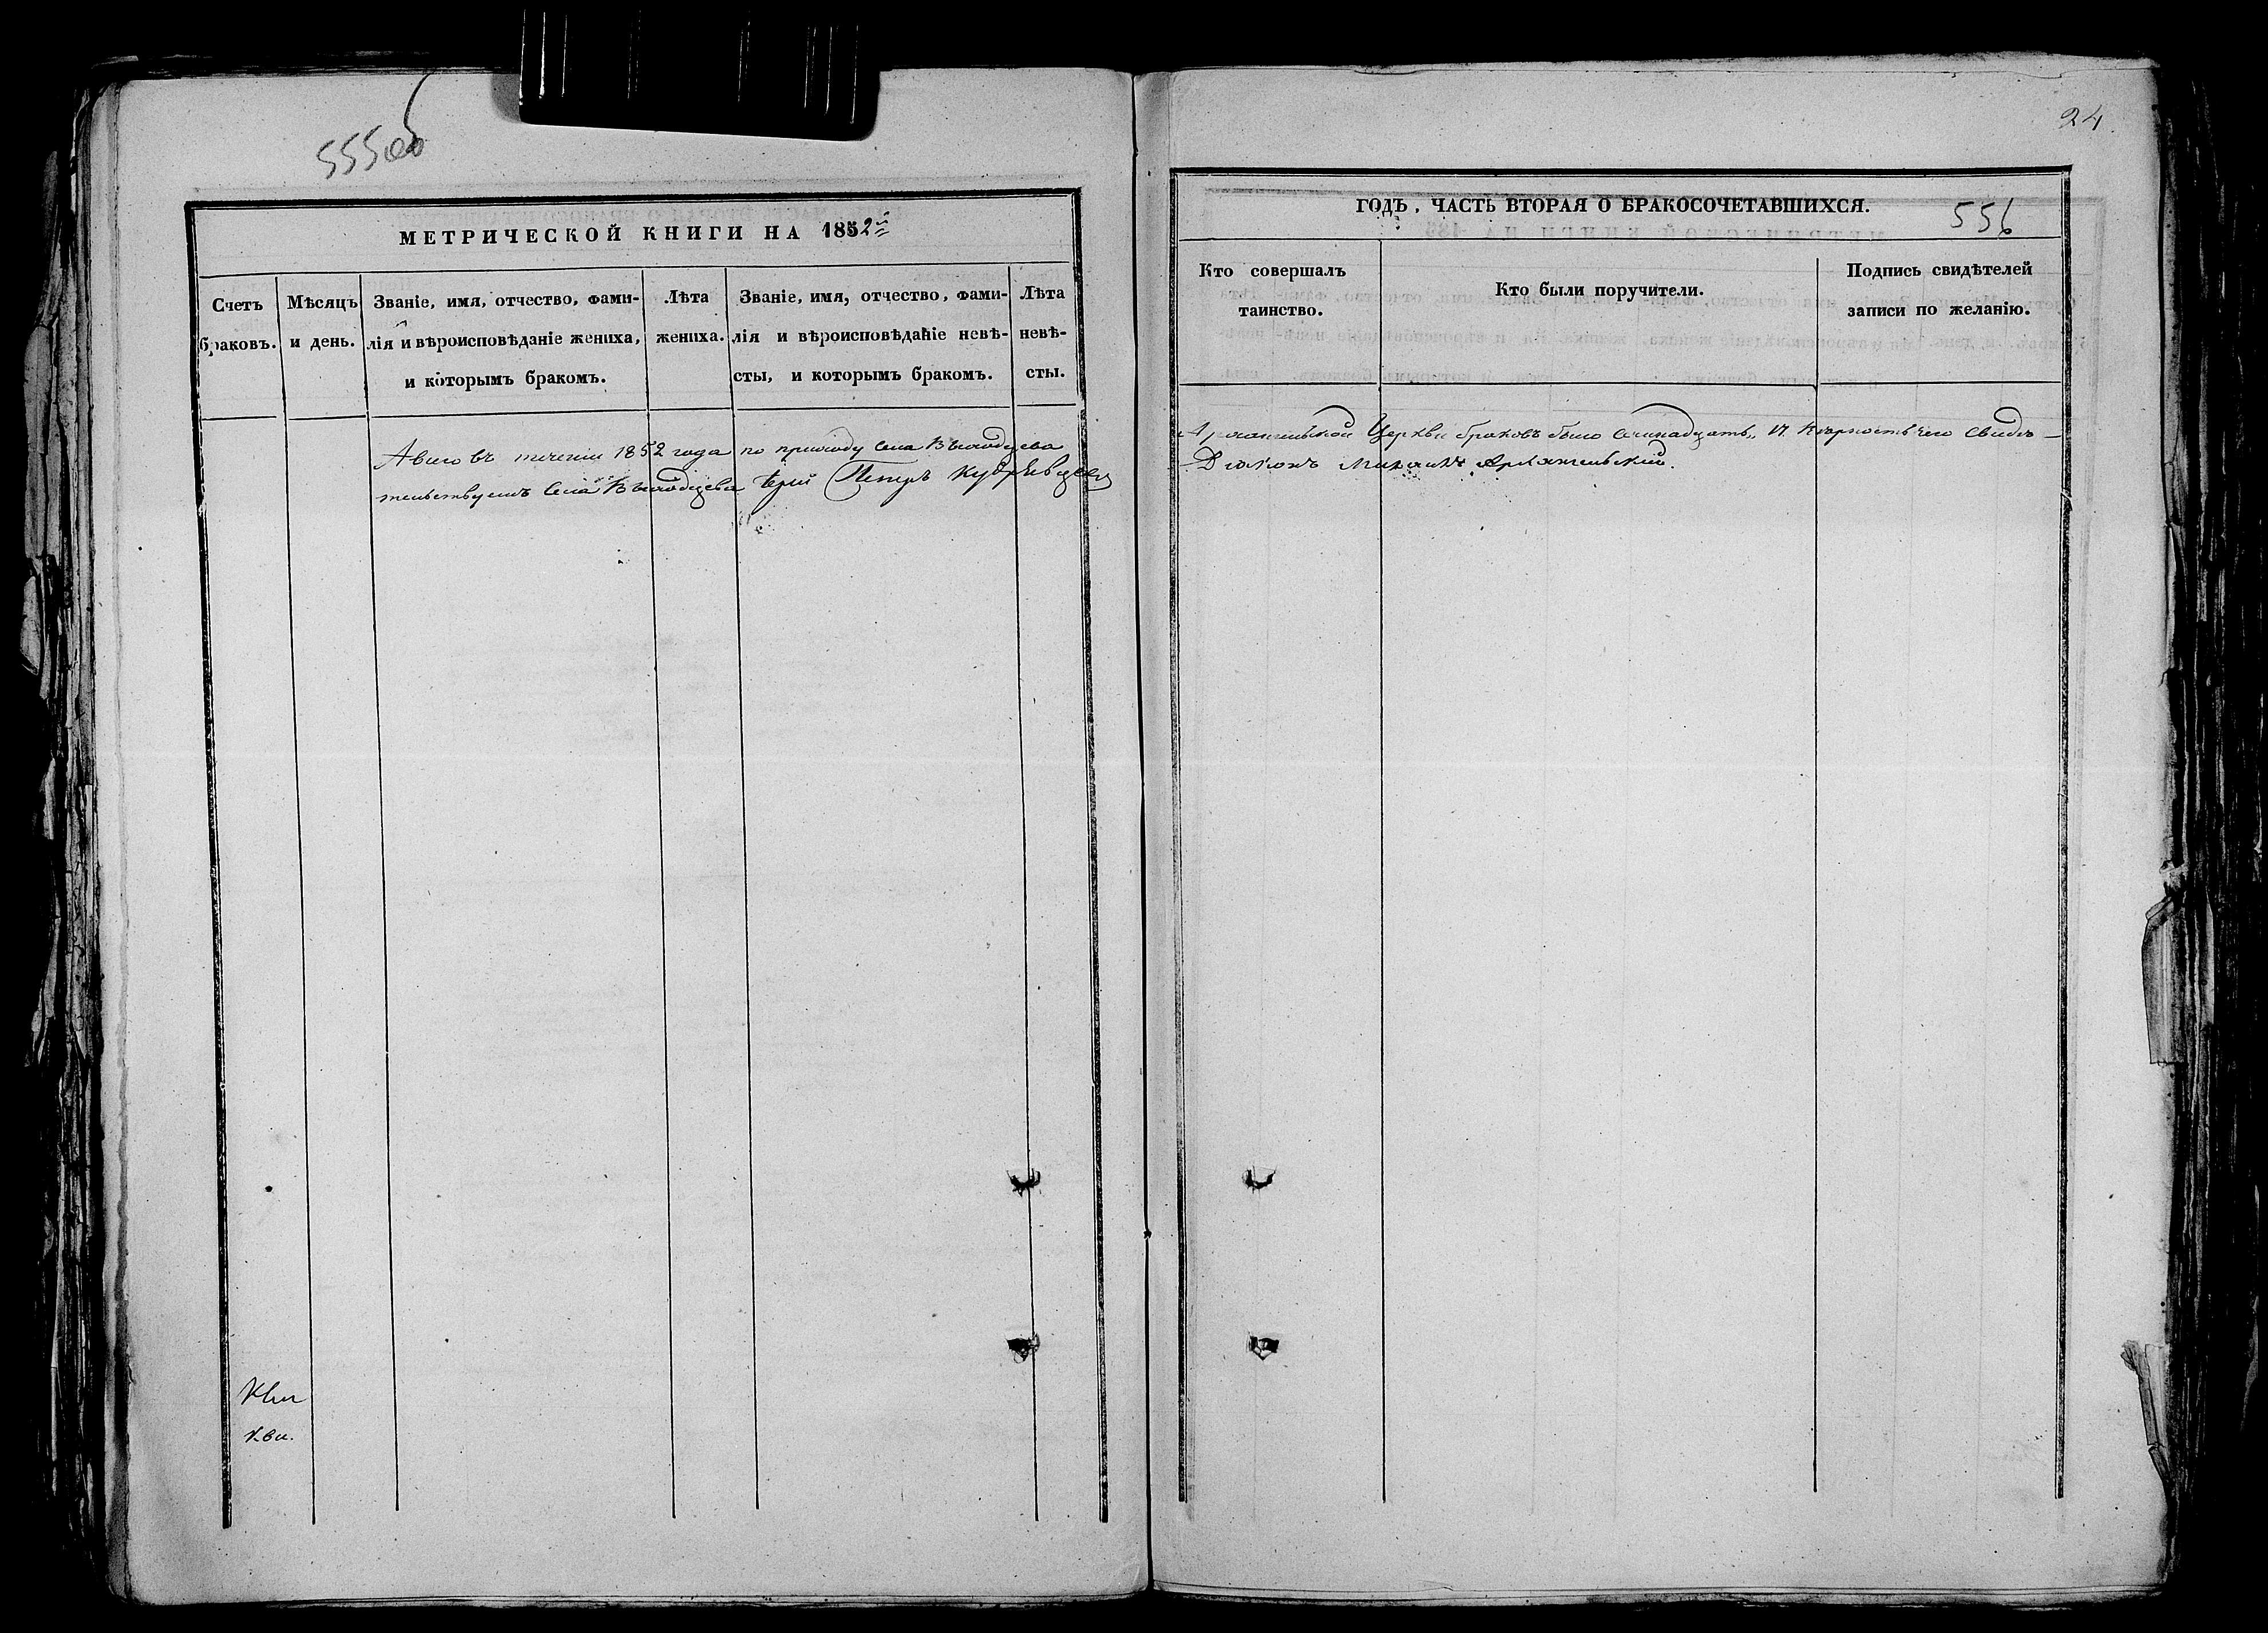 555об
МЕТРИЧЕСКОЙ КНИГИ НА 1852й
Счетъ браковъ.
Мѣсяцъ и день.
Званіе, имя, отчество, фами-
лія и вѣроисповѣданіе жениха,
и которымъ бракомъ.
Лѣта
жениха.
Званіе, имя, отчество, фами-
лія и вѣроисповѣданіе невѣ-
сты, и которымъ бракомъ.
Лѣта
невѣ-
сты.
Авсего въ теченіи 1852 года по приходу Села
тельствуемъ Села Іерей Петръ Кудрявцевъ
24
ГОДЪ, ЧАСТЬ ВТОРАЯ О БРАКОСОЧЕТАВШИХСЯ.
556
Кто совершалъ
таинство.
Кто были поручители.
Подпись свидѣтелей
записи по желанію.
Архангельской Церкви браковъ было Въ верность чего Свидѣ-
Діаконъ Михаилъ Архангельскій.